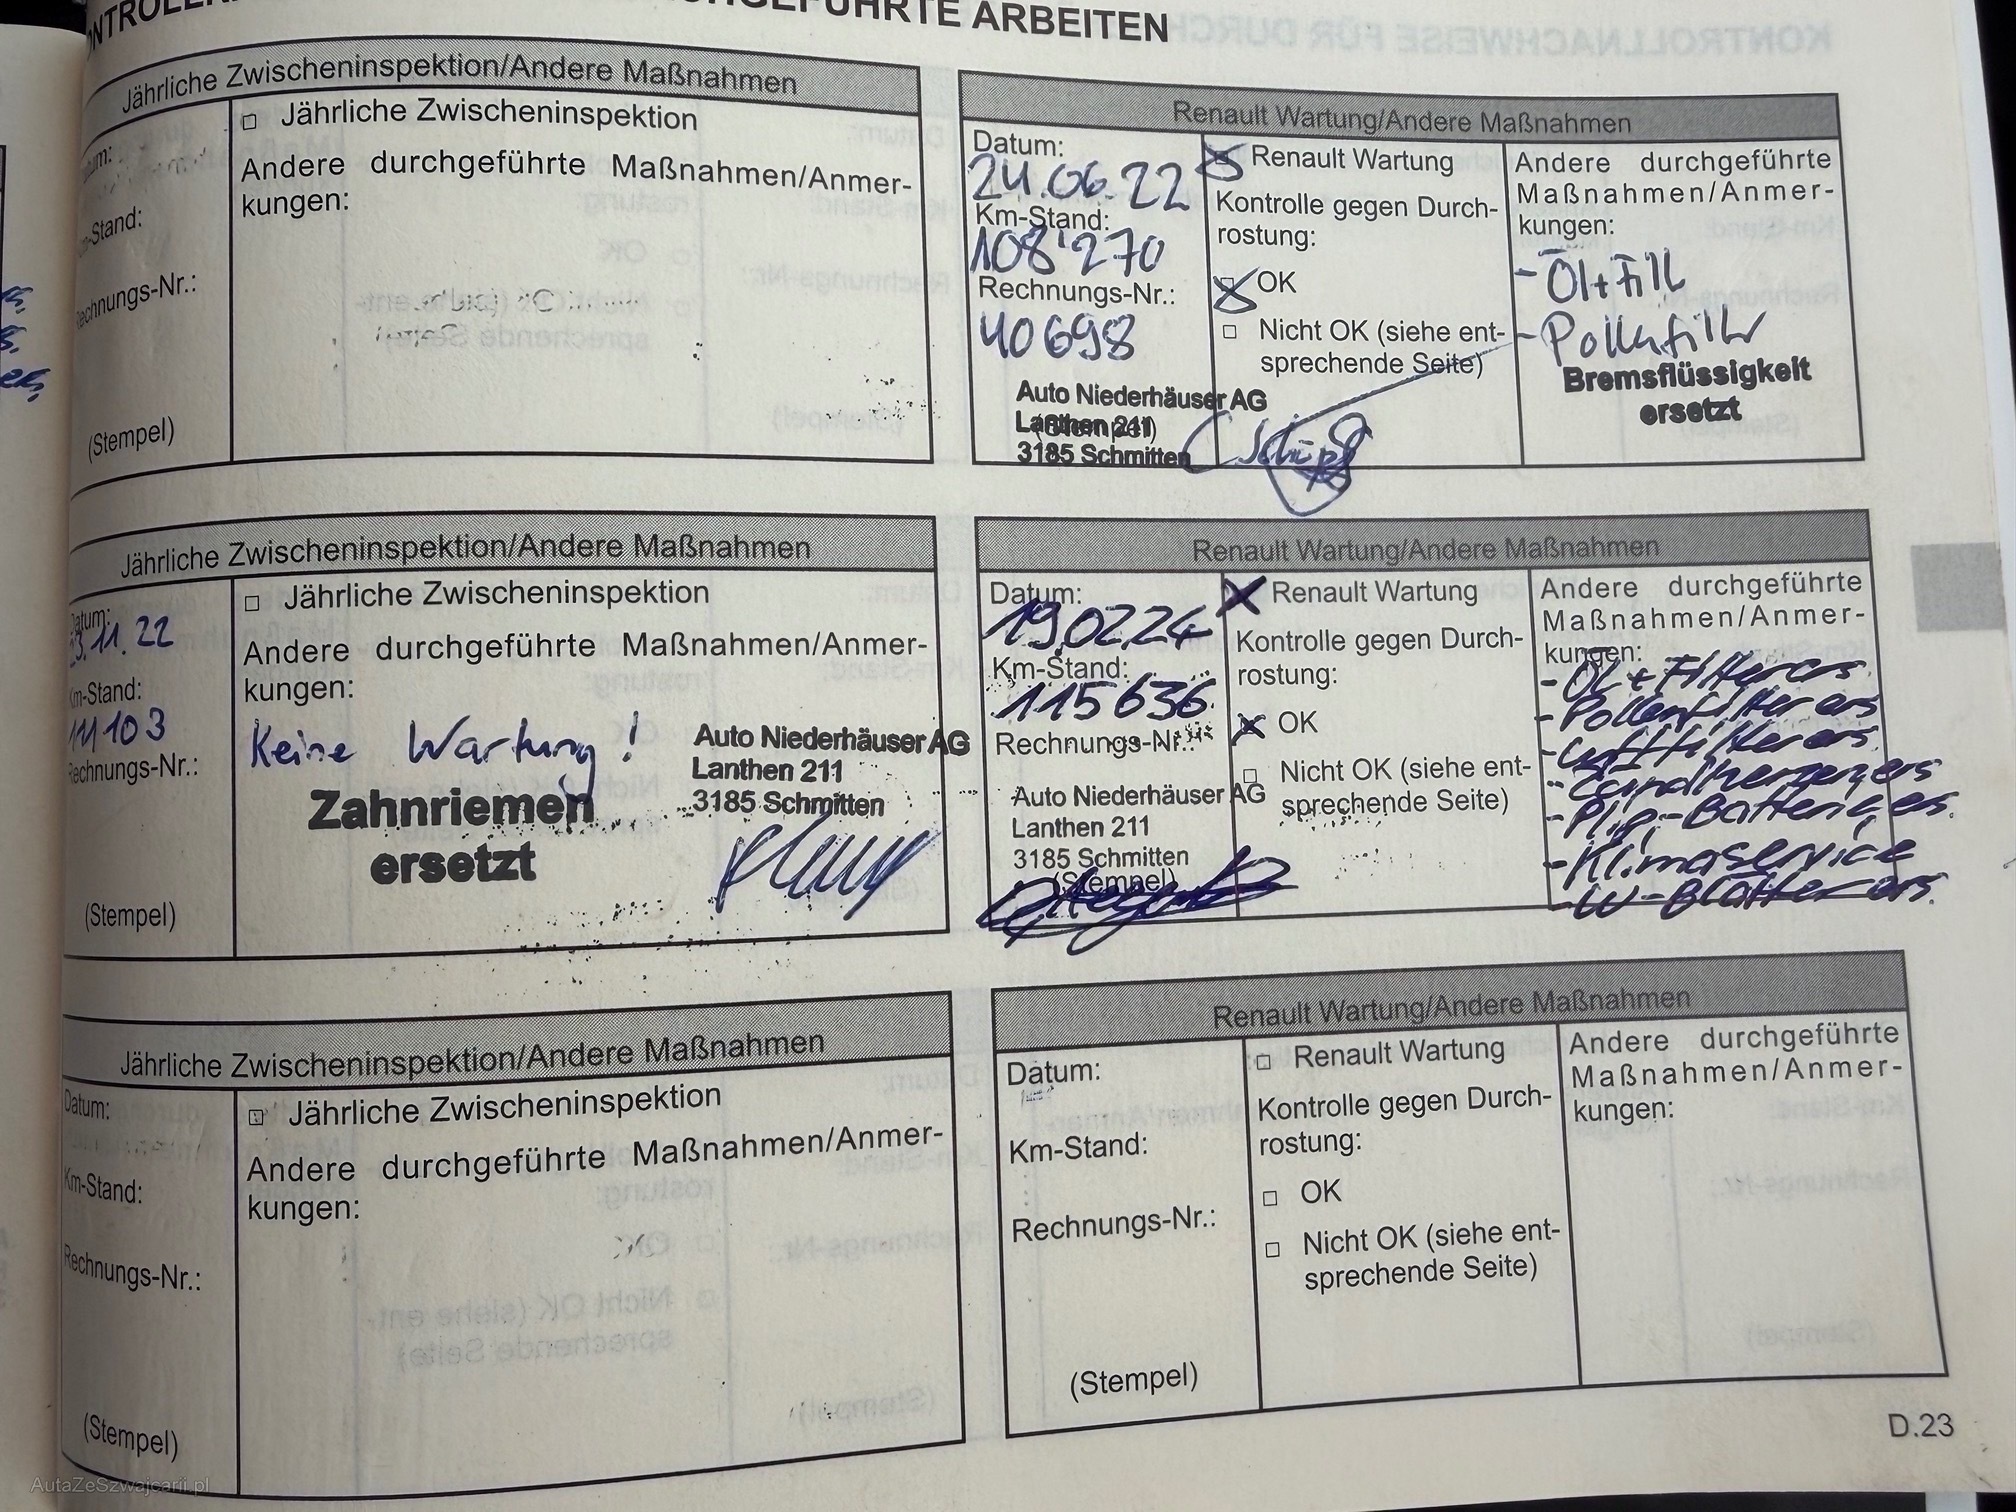 ARBEITEN
Jährliche Zwischeninspektion/Andere Maßnahmen
□ Jährliche Zwischeninspektion
Andere durchgeführte Maßnahmen/Anmer-
kungen:
Rechnungs-Nr.:
(Stempel)
Renault Wartung/Andere Maßnahmen
Datum:
24.06.22
Km-Stand:
108'270
Rechnungs-Nr.:
40698
Auto Niederhäuser AG
Lanthen 211
(Stempel)
3185 Schmitten
Renault Wartung
Kontrolle gegen Durch-
rostung:
OK
□ Nicht OK (siehe ent-
sprechende Seite)
Andere durchgeführte
Maßnahmen/Anmer-
kungen:
- Öl+Filt
- Pollenfilter
Bremsflüssigkeit
ersetzt
Jährliche Zwischeninspektion/Andere Maßnahmen
Datum:
23.11.22
Km-Stand:
111103
Rechnungs-Nr.:
(Stempel)
□ Jährliche Zwischeninspektion
Andere durchgeführte Maßnahmen/Anmer-
kungen:
Keine Wartung!
Zahnriemen
ersetzt
Auto Niederhäuser AG
Lanthen 211
3185 Schmitten
Renault Wartung/Andere Maßnahmen
Datum:
19.02.24
Km-Stand:
115636
Rechnungs-Nr.:
Auto Niederhäuser AG
Lanthen 211
3185 Schmitten
(Stempel)
Renault Wartung
Kontrolle gegen Durch-
rostung:
OK
□ Nicht OK (siehe ent-
sprechende Seite)
Andere durchgeführte
Maßnahmen/Anmer-
kungen:
- ÖL + Filter ers
- Pollenfilter ers
- Luftfilter ers.
- Zündkerzen ers
- Plip-Batterie ers.
- Klimaservice
- W-Blätter ers.
Jährliche Zwischeninspektion/Andere Maßnahmen
Datum:
Km-Stand:
Rechnungs-Nr.:
(Stempel)
□ Jährliche Zwischeninspektion
Andere durchgeführte Maßnahmen/Anmer-
kungen:
Renault Wartung/Andere Maßnahmen
Datum:
Km-Stand:
Rechnungs-Nr.:
(Stempel)
□ Renault Wartung
Kontrolle gegen Durch-
rostung:
□ OK
□ Nicht OK (siehe ent-
sprechende Seite)
Andere durchgeführte
Maßnahmen/Anmer-
kungen:
D.23
AutaZeSzwajcarii.pl